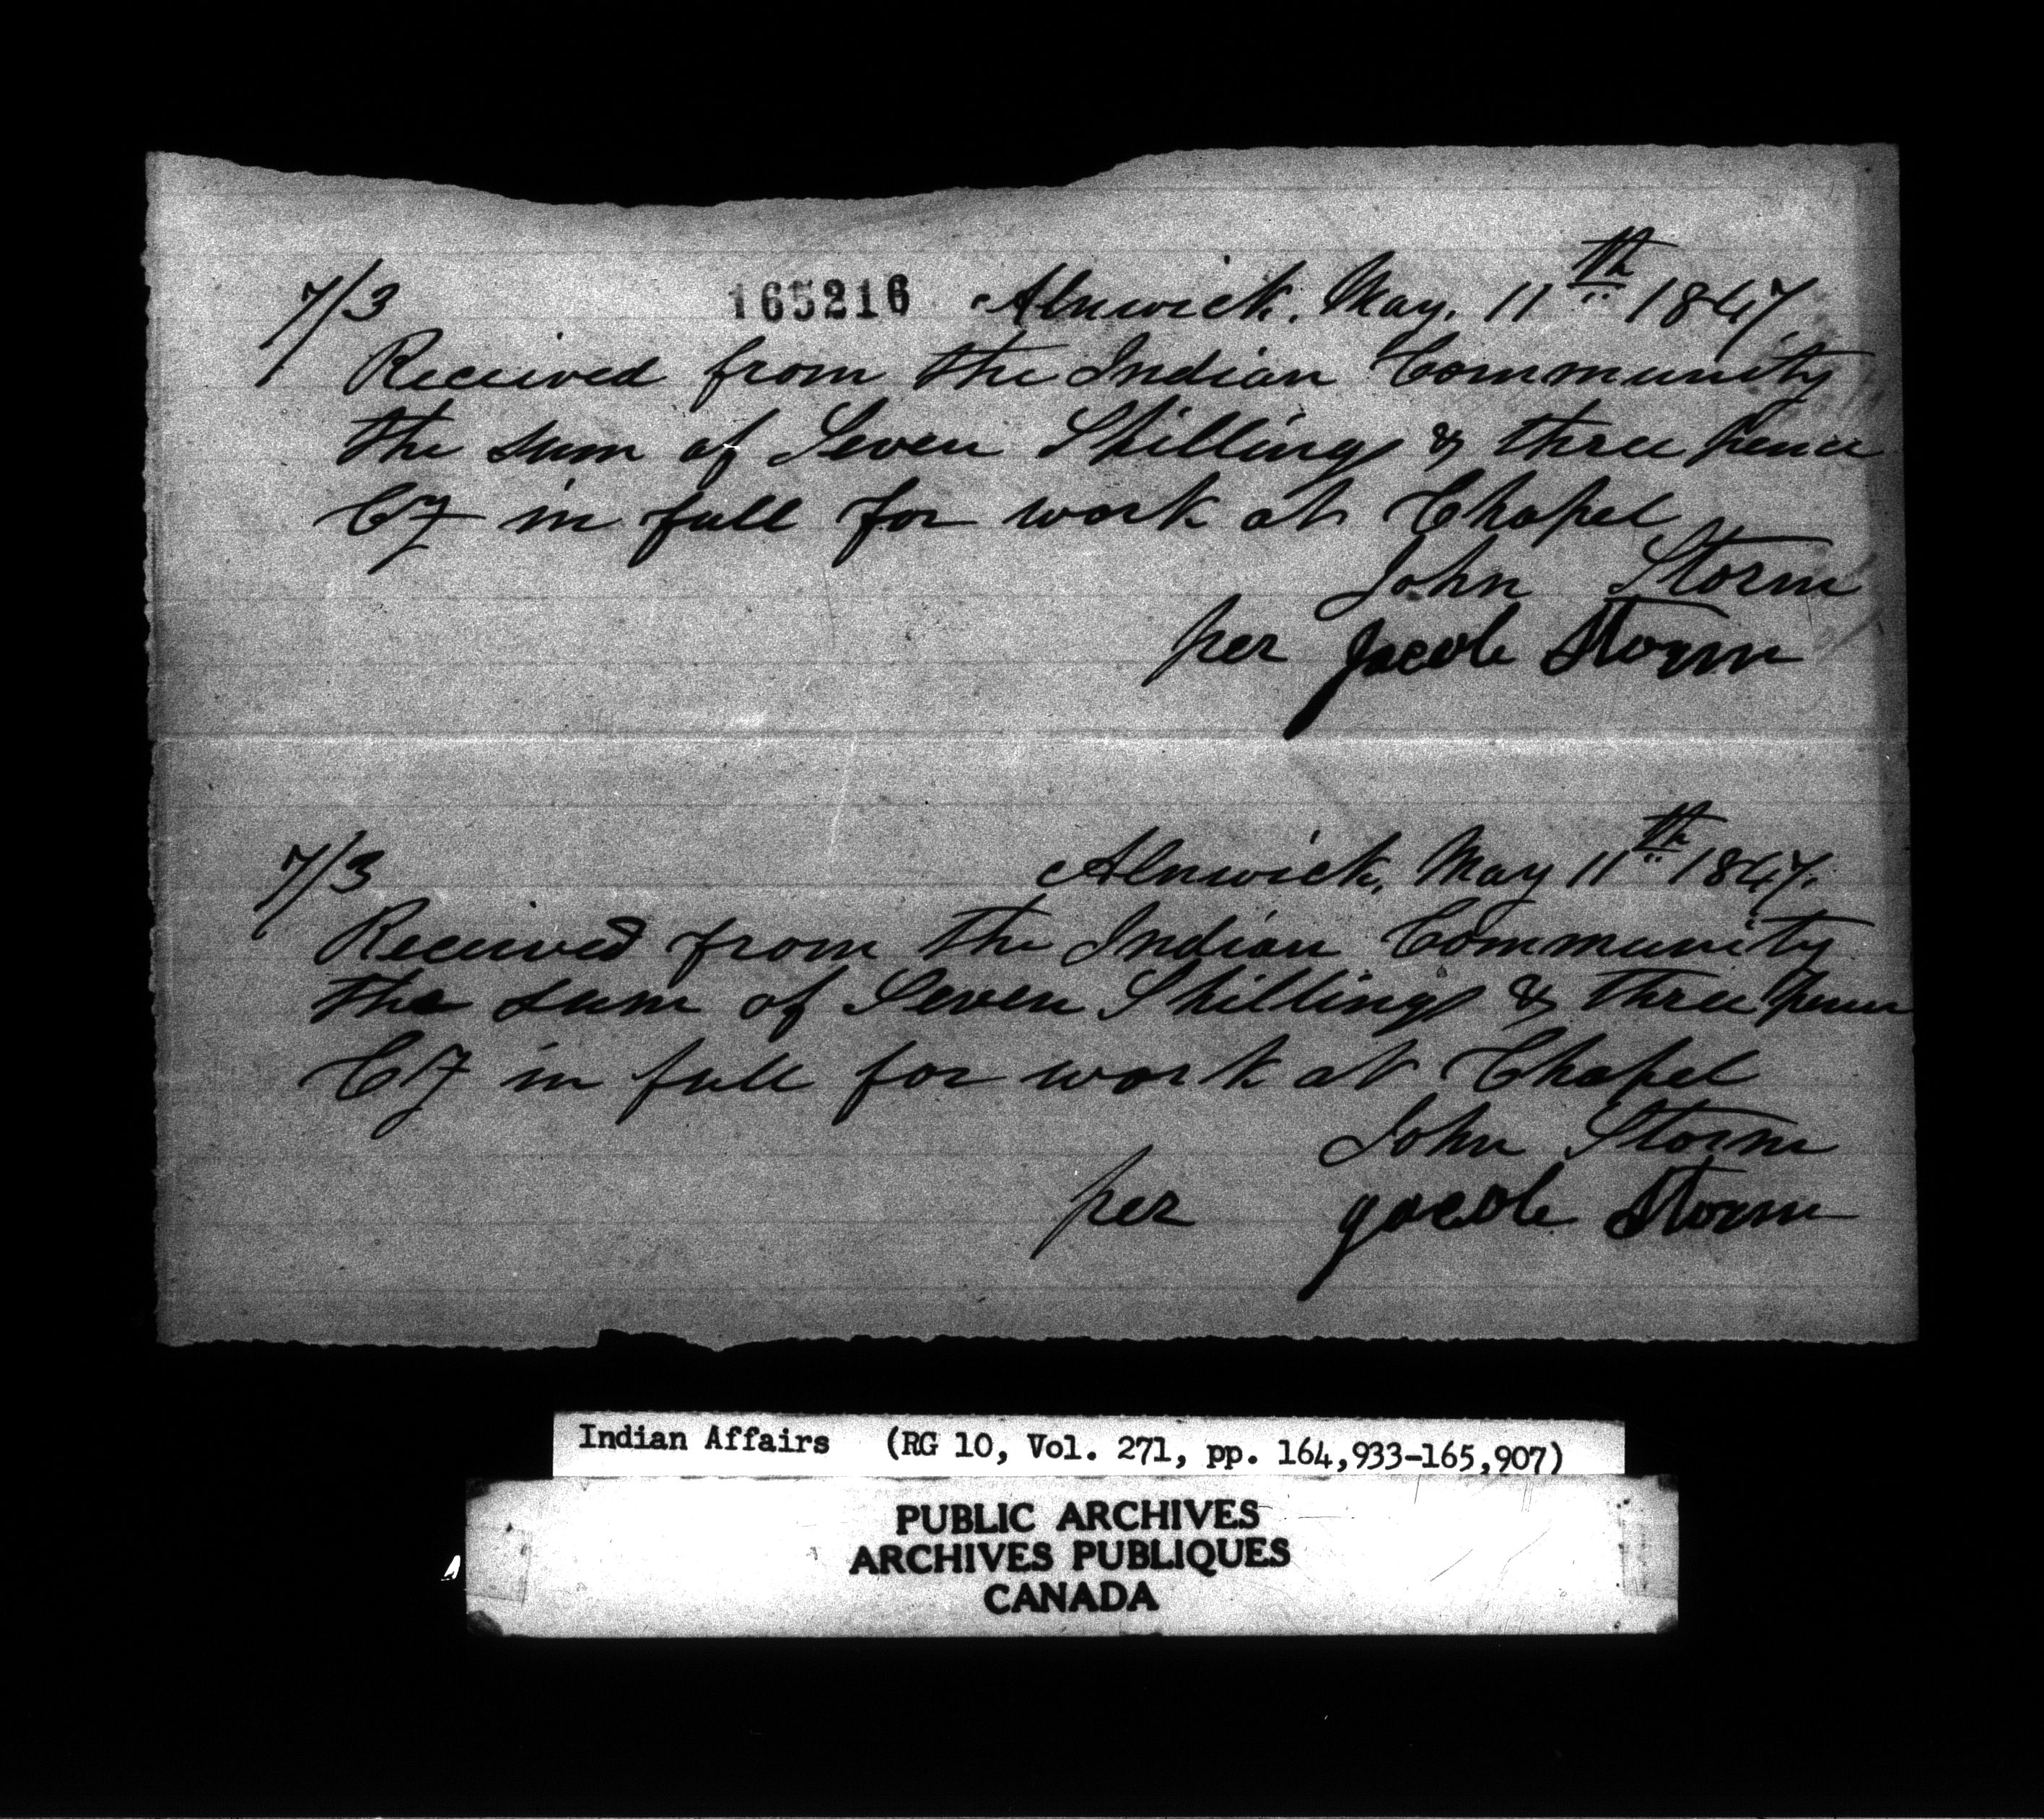 7/3 165216 Alnwick. May. 11th 1847.
Received from the Indian Community
the sum of Seven Shillings & three pence
Cy in full for work at Chapel
John Storm
per Jacob Storm
7/3 Alnwick, May 11th 1847.
Received from the Indian Community
the sum of Seven Shillings & three pence
Cy in full for work at Chapel
John Storm
per Jacob Storm
Indian Affairs (RG 10, Vol. 271, pp. 164,933-165,907)
PUBLIC ARCHIVES
ARCHIVES PUBLIQUES
CANADA